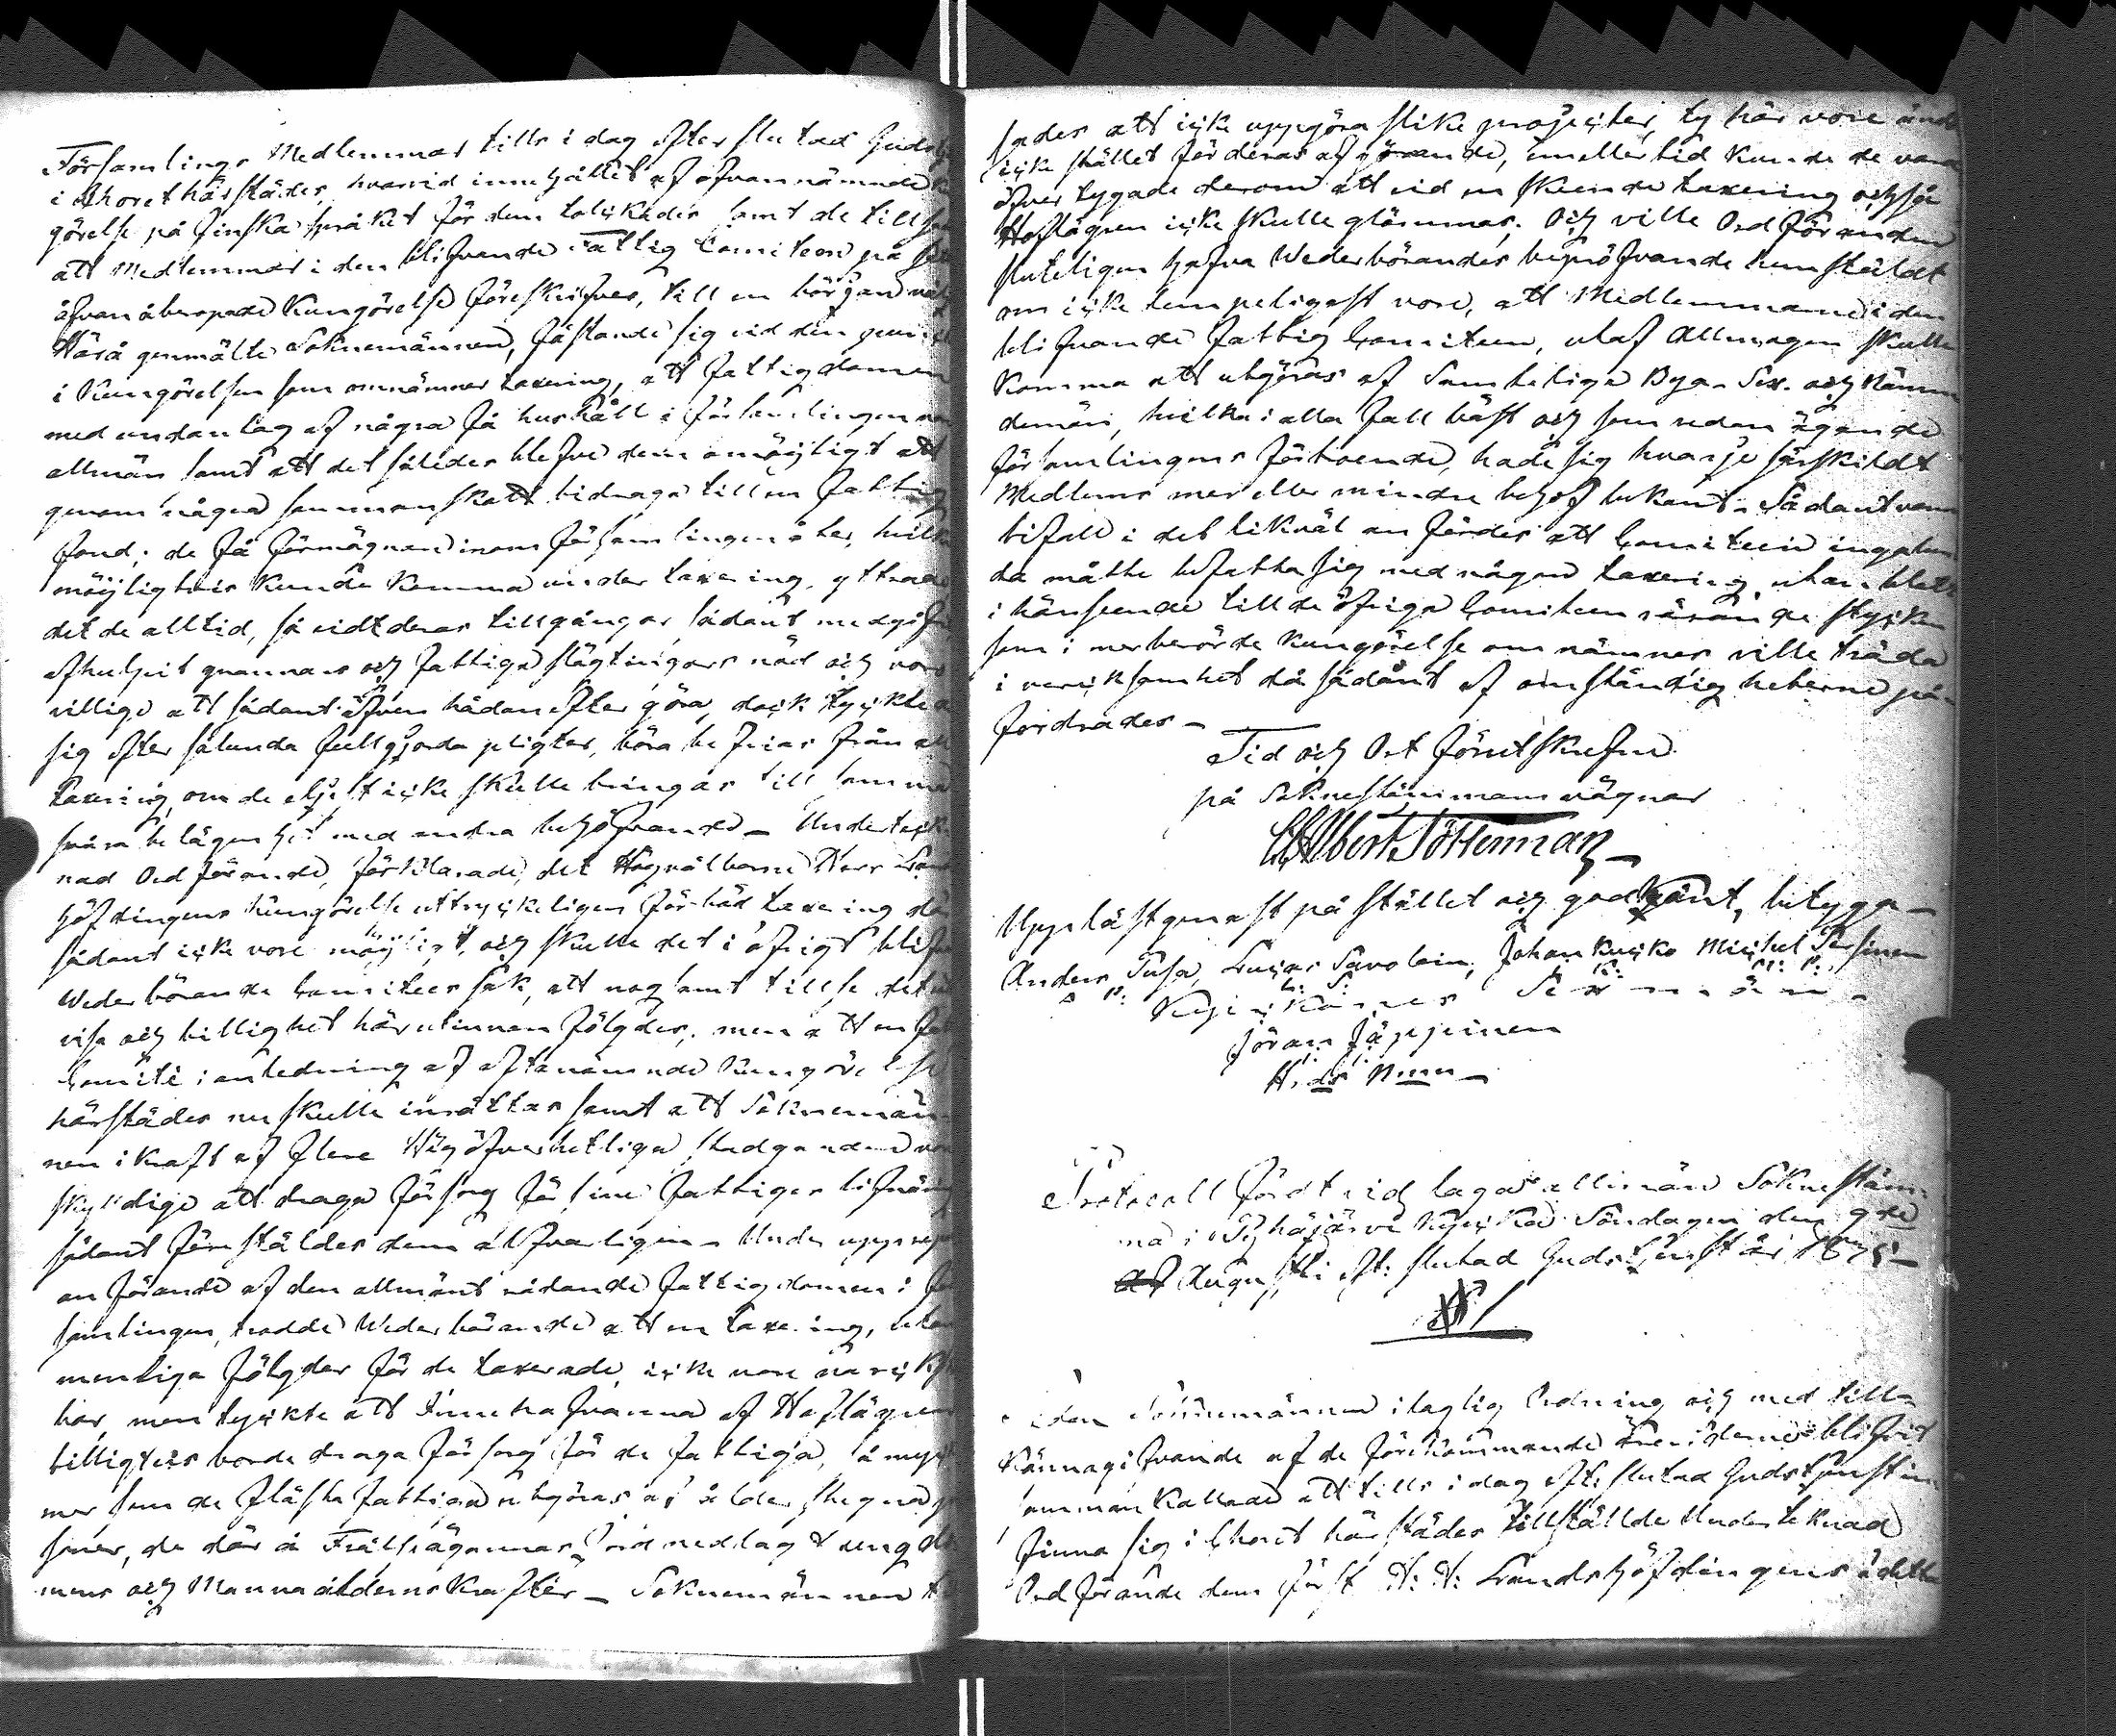 Församlings Medlemmar tills i dag efter slutad Guds
i Choret härstädes, hvarvid innehållet af ofvannämnde
görelse på finska språket för dem tolkades samt de till
att Medlemmar i den blifvande Fattig Comiteen på
åfvanåberopade Kungörelse föreskrifves, till en början
Härå genmälte Soknemännen, fästande sig vid den punct
i Kungörelsen som omnämner taxering, att fattigdomen
med undantag af några få hushåll i församlingen
allmän samt att det således blefve dem omöjligt att
genom någon sammanskatt bidraga till en Fattig
fond; de få förmögnare inom församlingen åter,
möjligtvis kunde komma under taxering, yttrade
det de alltid, så vidt deras tillgångar sådant medgifvit
afhulpit grannars och fattiga slägtingars nöd och voro
villige att sådant äfven hädanefter göra, dock tyckte
sig efter sålunda fullgjorda pligter, böra befrias från
taxering, om de eljest icke skulle bringas till samma
svåra belägenhet med andra behöfvande – Underteck-
nad Ordförande, förklarade, det Högvälborne Herr
höfdingens kungörelse uttryckeligen förböd taxering då
sådant icke vore möjligt, och skulle det i öfrigt blifva
Wederbörande Comiteers sak, att nogsamt tillse det
visa och billighet härutinnan följdes; men att en
Comité i anledning af oftanämnde Kungörelse
härstädes nu skulle inrättas samt att Soknemän-
nen i kraft af flere Högöfverhetliga stadganden voro
skyldige att draga försorg för sine fattigas lifnäring
sådant föreställdes dem alfvarligen – Under
anförande af den allmänt rådande fattigdomen i
samlingen, trodde Wederbörande att en taxering, utan
menliga följder för de taxerade, icke vore
här, men tyckte att Innehafvarena af Hoflägren
billigtvis borde draga försorg för de fattiga, så
mer som de flästa fattiga utgöras af ålderstegna
soner, de där å Frälseägarnas jord nedlagt ungdo-
mens och Mannaålderns krafter – Soknemännen
des att icke uppgöra slike projecter, ty här vore
icke stället för deras afgörande, emellertid kunde de vara
öfvertygade derom att vid en skeende taxering också
Hoflägren icke skulle glömmas. Och ville Ordföranden
sluteligen hafva Wederbörandes bepröfvande hemstäldt
om icke lempeligast vore, att Medlemmarne i den
blifvande fattig Comiteen, utaf Allmogen skulle
komma att utgöras af Samtelige Bya-Sex. och Nämn
demän, hvilka i alla fall bäst och som redan ägande
församlingens förtroende, hade sig hvarje särskildt
Medlems mer eller mindre behof bekant. Sådant vann
bifall i det likväl anfördes att Comiteen ingalun
da måtte befatta sig med någon taxering, utan blott
i hänseende till de öfriga Comiteen rörande stycken
som i merberörde kungörelse omnämnes ville träda
i verksamhet då sådant af omständigheterne på-
fordrades –
Tid och Ort förutskrefne
på Soknestämmans vägnar
Albert Sötterman
Uppläst genast på stället och godkänt, betyga –
Anders Tusa, Lucas Savolain, Johan Kuicko Michel
Kyrkio
Sexmän
Jöran Jäppinen
Protocoll fördt vid laga allmän Soknestäm-
ma i Pyhäjärvi Kyrcka Söndagen den 9de
Augusti eft: slutad Gudstjenst år
Soknemännen i laglig Ordning och med till-
kännagifvande af de förekommande ärendena blifvit
sammankallade att tills i dag eft: slutad Gudstjenst in
finna sig i Choret härstädes tillställde Undertecknad
Ordförande dem först H: H: Landshöfdingens i detta